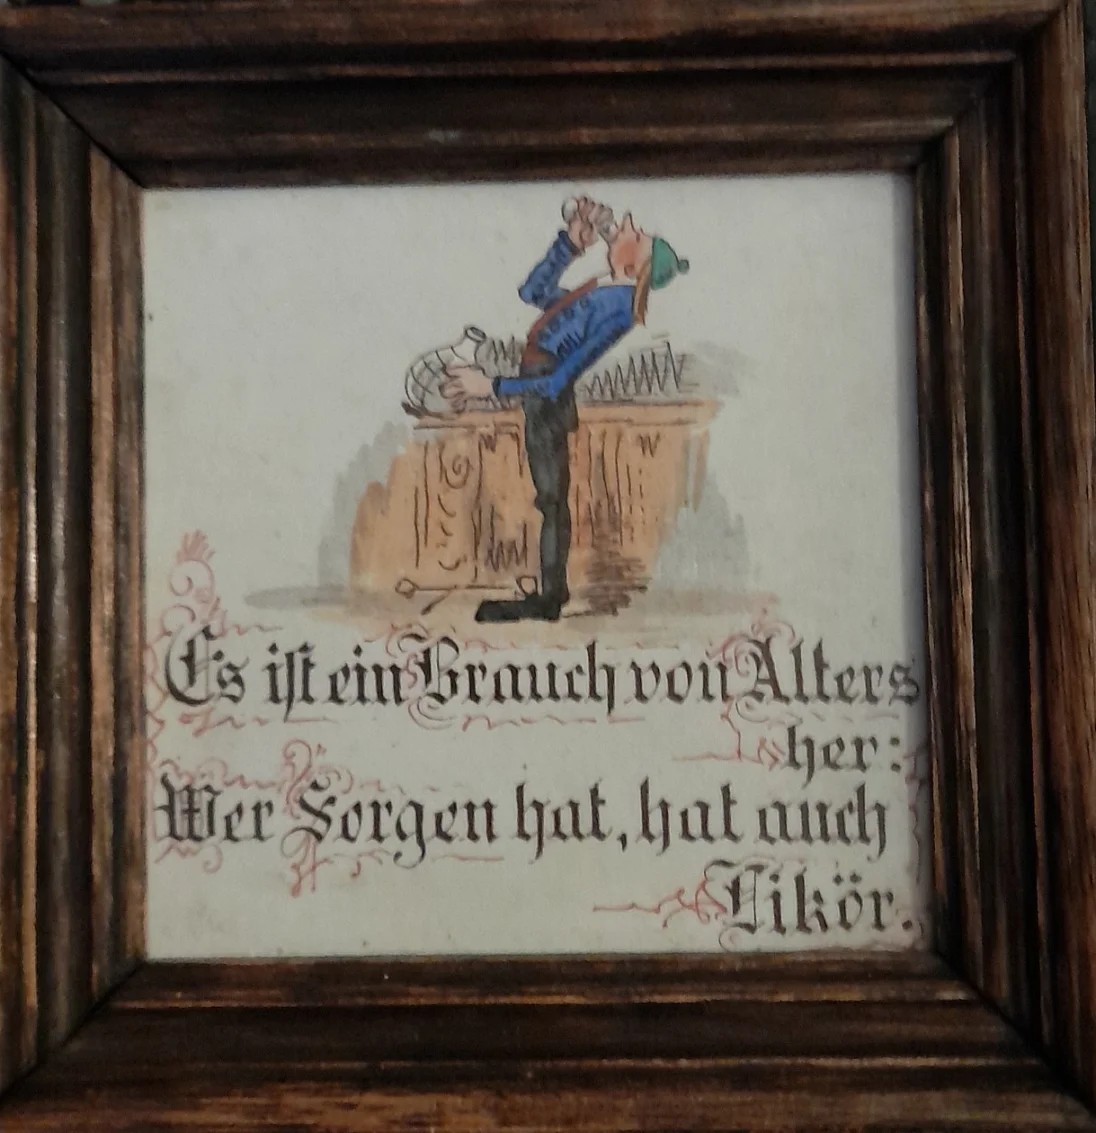 Es ist ein Brauch von Alters
her:
Wer Sorgen hat, hat auch
Likör.